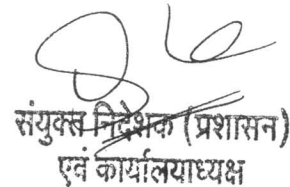 संयुक्त निदेशक (प्रशासन)
एवं कार्यालयाध्यक्ष